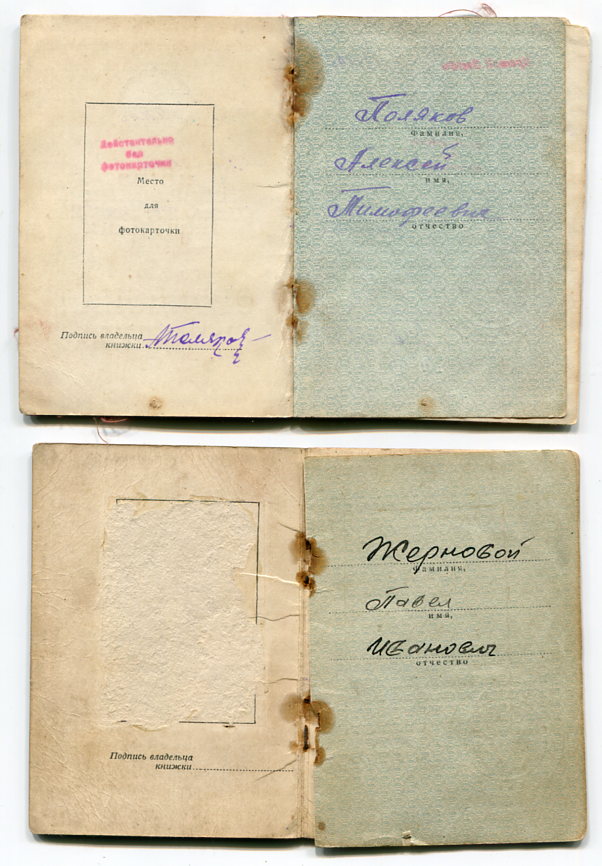 Действительно
без
фотокарточки
Место
для
фотокарточки
Подпись владельца
книжки Поляков
Поляков
фамилия,
Алексей
имя,
Тимофеевич
отчество
Подпись владельца
книжки
Жерновой
фамилия,
Павел
имя,
Иванович
отчество